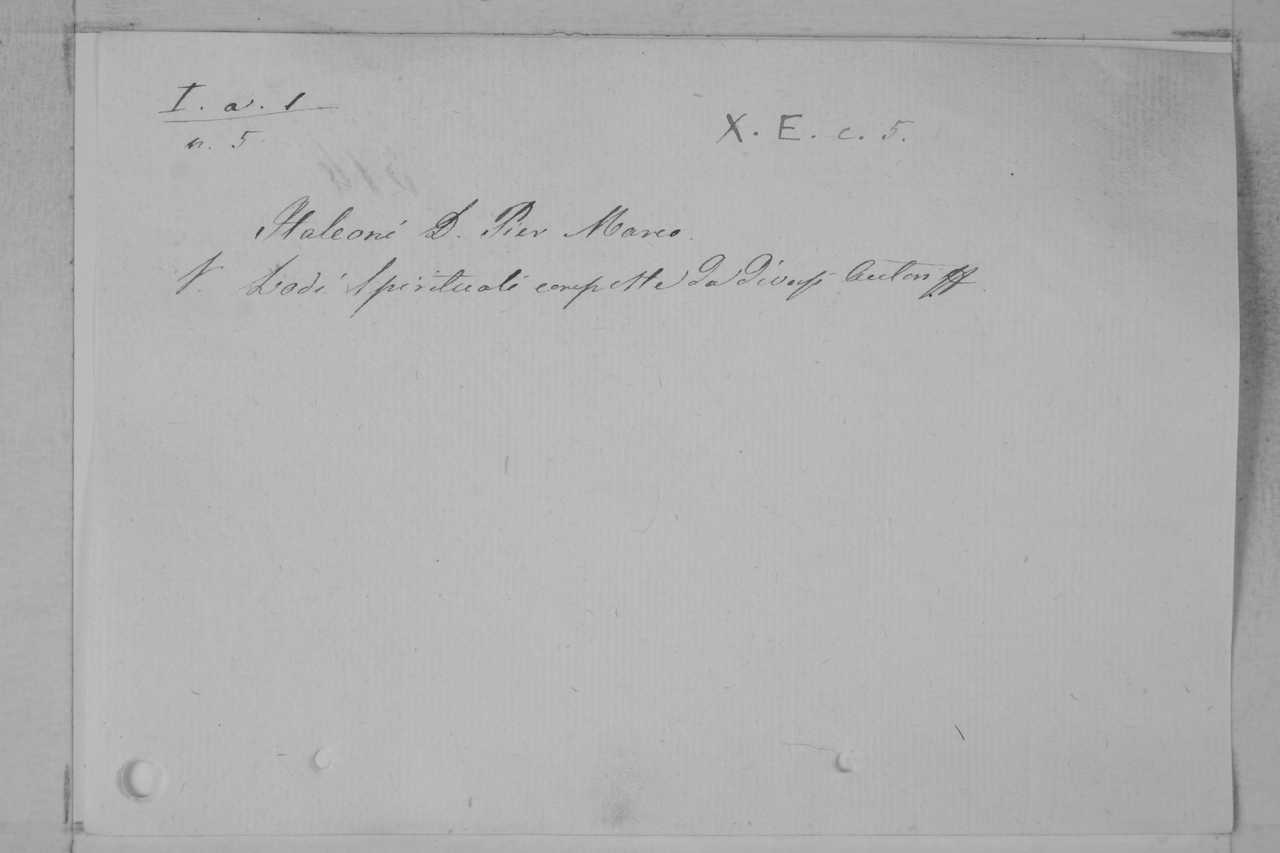 I. a. 1
n. 5
X. E. c. 5.
Italeoni D. Pier Marco.
V. Lodi Spirituali composte da diversi Autori